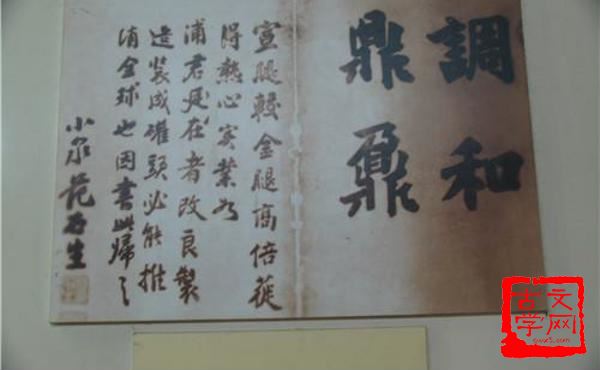 調和
鼎鼐
宣腿較金腿高倍蓰
得熱心實業如
浦君在者改良製
造裝成罐頭必能推
銷全球也因書此歸之
小泉范石生
古文
学网